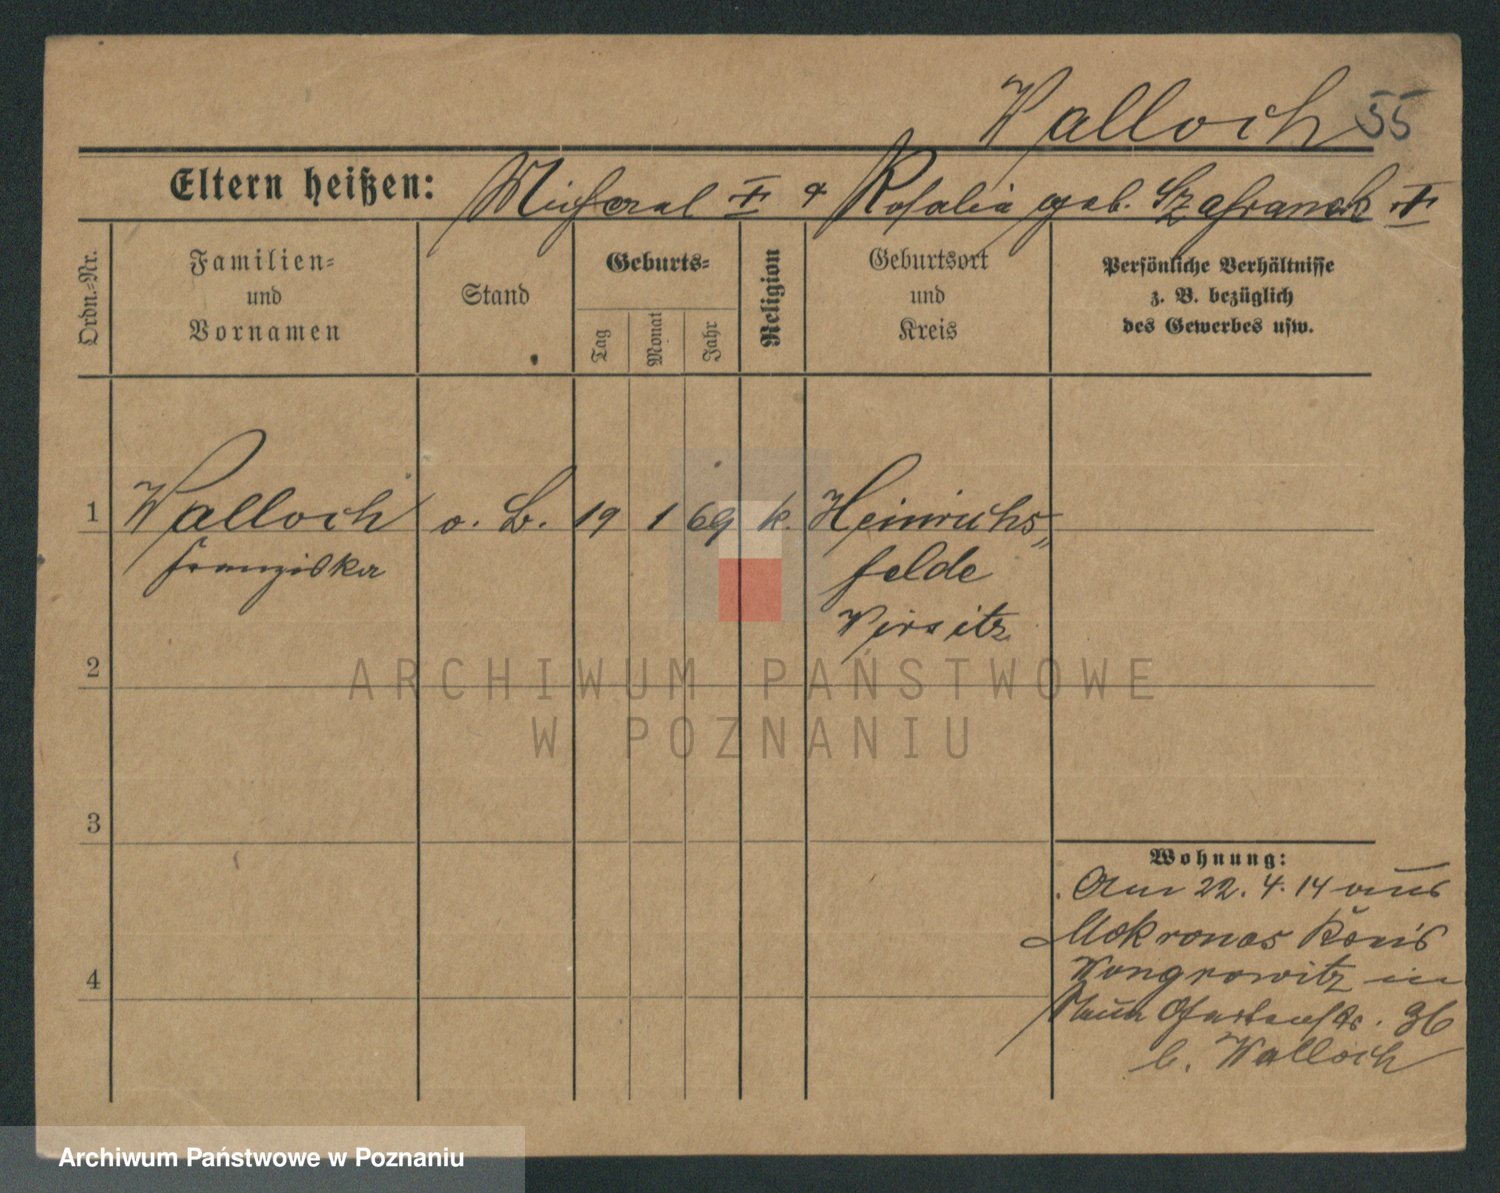 Walloch 55
Eltern heißen: Michael † & Rosalia geb. Szafranek †
Ordn.-Nr.
Familien-
und
Vornamen
Stand
Geburts-
Tag
Monat
Jahr
Religion
Geburtsort
und
Kreis
Persönliche Verhältnisse
z. B. bezüglich
des Gewerbes usw.
1 Walloch o. B. 19 1 69 k. Heinrichs„
Franziska felde
Wirsitz
2
3
4
Wohnung:
Am 22. 4. 14 aus
Mokronos Kreis
Wongrowitz in
Gartenstr. 36
b. Walloch
ARCHIWUM PAŃSTWOWE
W POZNANIU
Archiwum Państwowe w Poznaniu